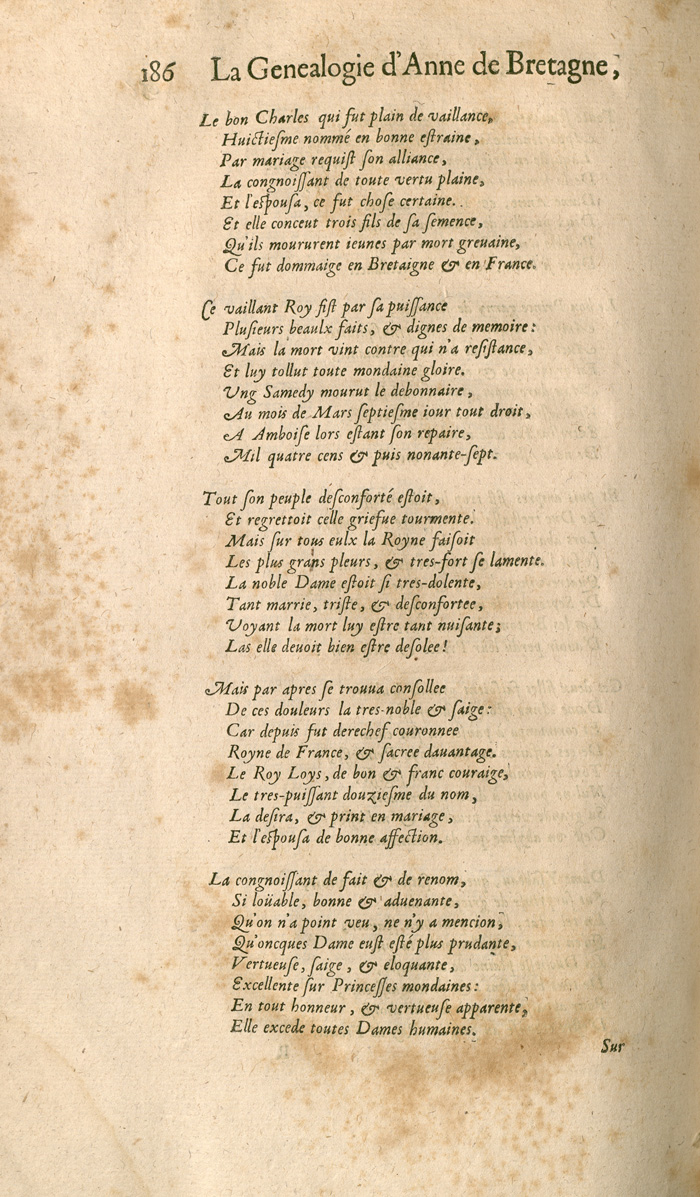 186 La Genealogie d'Anne de Bretagne,
Le bon Charles qui fut plain de vaillance,
Huictieſme nommé en bonne eſtraine,
Par mariage requiſt ſon alliance,
La congnoiſſant de toute vertu plaine,
Et l'eſpouſa, ce fut choſe certaine.
Et elle conceut trois fils de ſa ſemence,
Qu'ils moururent ieunes par mort greuaine,
Ce fut dommaige en Bretaigne & en France.
Ce vaillant Roy fiſt par ſa puiſſance
Pluſieurs beaulx faits, & dignes de memoire:
Mais la mort vint contre qui n'a reſiſtance,
Et luy tollut toute mondaine gloire.
Ung Samedy mourut le debonnaire,
Au mois de Mars ſeptieſme iour tout droit,
A Amboiſe lors eſtant ſon repaire,
Mil quatre cens & puis nonante-ſept.
Tout ſon peuple deſconforté eſtoit,
Et regrettoit celle griefue tourmente.
Mais ſur tous eulx la Royne faiſoit
Les plus grans pleurs, & tres-fort ſe lamente.
La noble Dame eſtoit ſi tres-dolente,
Tant marrie, triſte, & deſconfortee,
Voyant la mort luy eſtre tant nuiſante;
Las elle deuoit bien eſtre deſolee!
Mais par apres ſe trouua conſollee
De ces douleurs la tres-noble & ſaige:
Car depuis fut derechef couronnee
Royne de France, & ſacree dauantage.
Le Roy Loys, de bon & franc couraige,
Le tres-puiſſant douzieſme du nom,
La deſira, & print en mariage,
Et l'eſpouſa de bonne affection.
La congnoiſſant de fait & de renom,
Si loüable, bonne & aduenante,
Qu'on n'a point veu, ne n'y a mencion,
Qu'oncques Dame euſt eſté plus prudante,
Vertueuſe, ſaige, & eloquante,
Excellente ſur Princeſſes mondaines:
En tout honneur, & vertueuſe apparente,
Elle excede toutes Dames humaines.
Sur